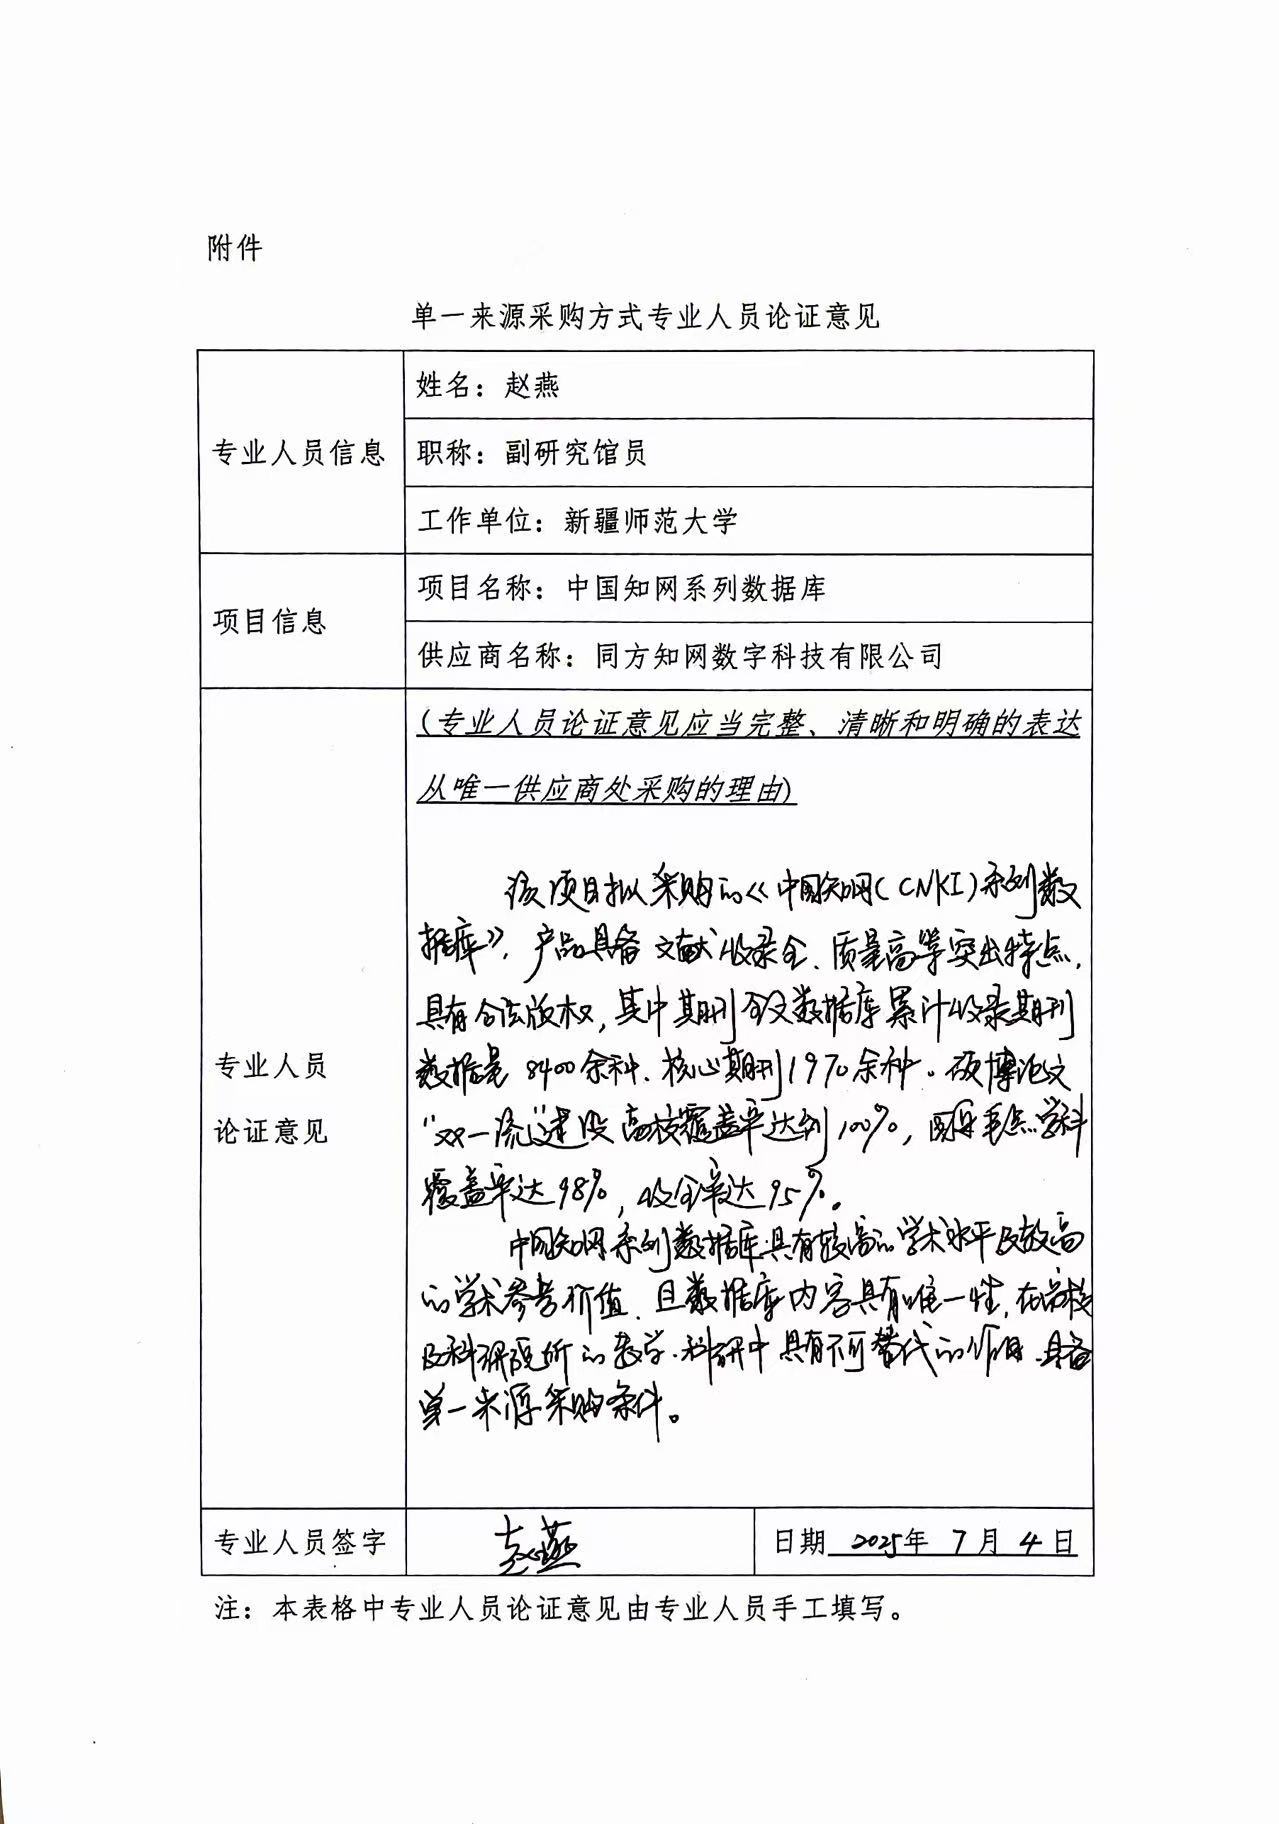 附件
单一来源采购方式专业人员论证意见
专业人员信息
姓名：赵燕
职称：副研究馆员
工作单位：新疆师范大学
项目信息
项目名称：中国知网系列数据库
供应商名称：同方知网数字科技有限公司
专业人员
论证意见
(专业人员论证意见应当完整、清晰和明确的表达
从唯一供应商处采购的理由)
该项目拟采购的《中国知网(CNKI)系列数
据库》，产品具备文献收录全、质量高等突出特点，
具有合法版权，其中期刊全文数据库累计收录期刊
数据量8400余种、核心期刊1970余种。硕博论文
“双一流”建设高校覆盖率达到100%，国家重点学科
覆盖率达98%，收全率达95%。
中国知网系列数据库具有较高的学术水平及较高
的学术参考价值，且数据库内容具有唯一性，在高校
及科研院所的教学、科研中具有不可替代的作用，具备
单一来源采购条件。
专业人员签字
赵燕
日期 2025年 7月 4日
注：本表格中专业人员论证意见由专业人员手工填写。